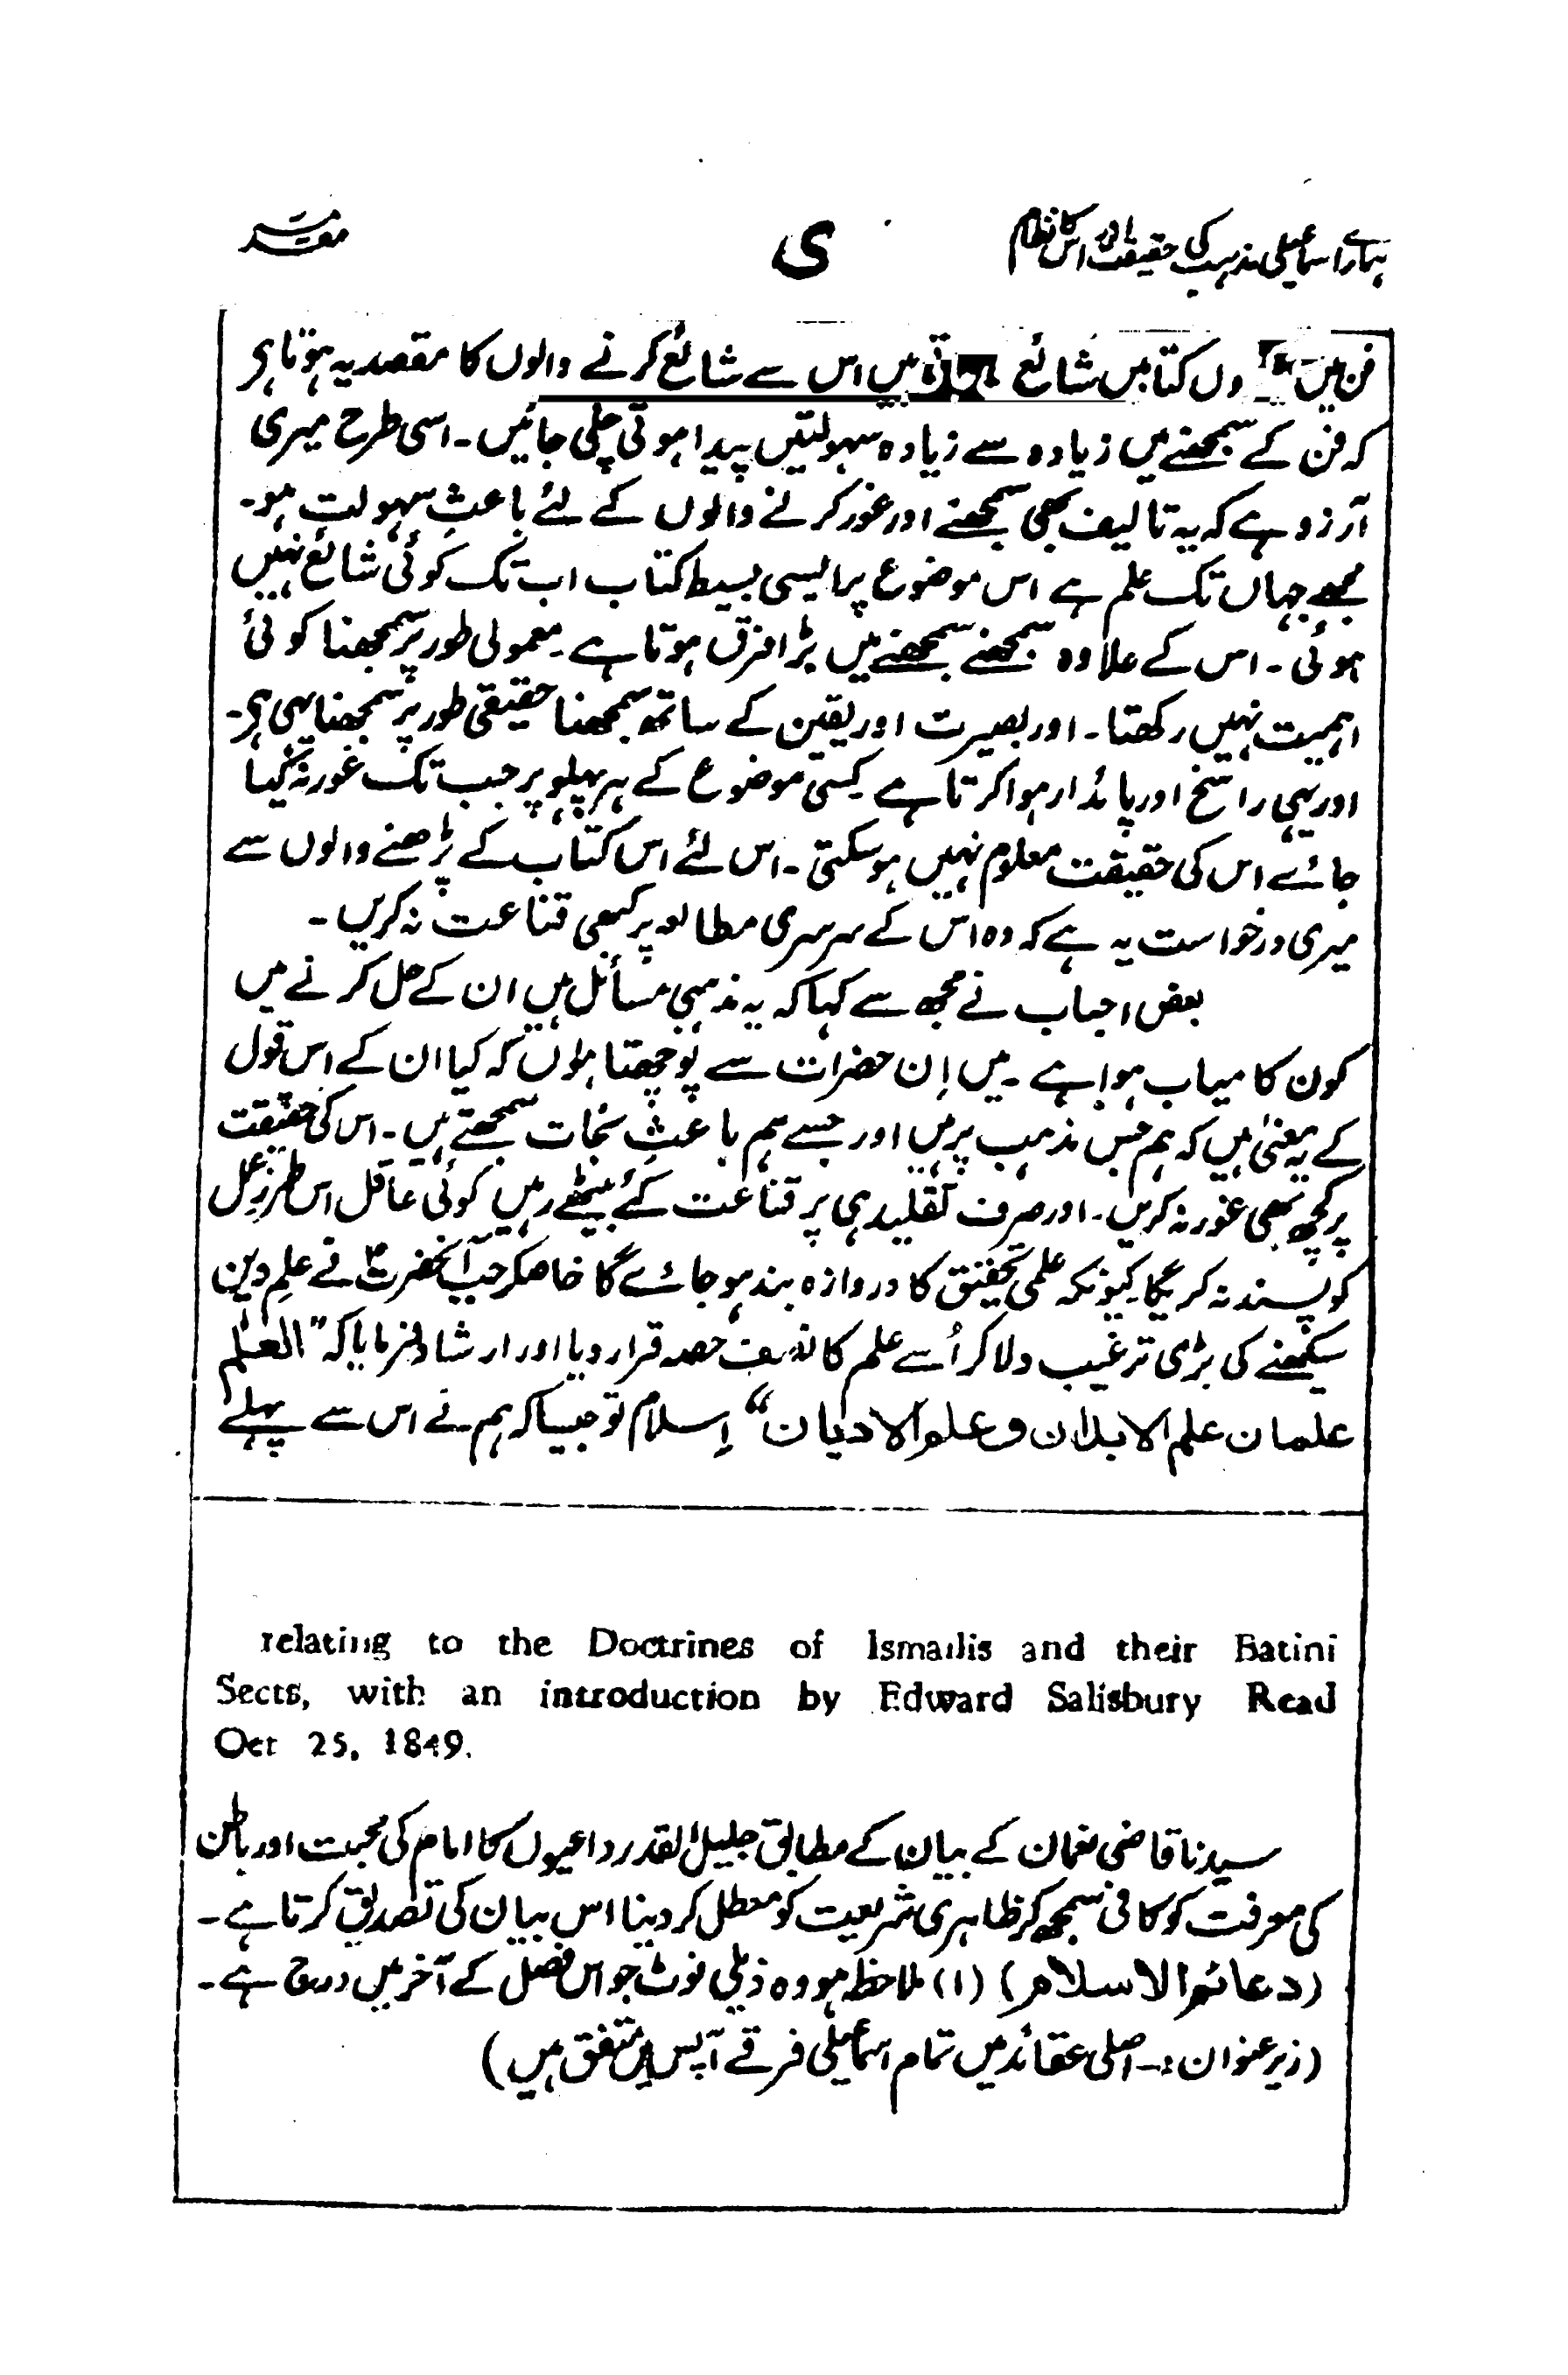 ہمارے اسماعیلی مذہب کی حقیقت اور اس کا نظام
ی
مقدمہ
فن میں وں کتابیں شائع ہوتی ہیں اس سے شائع کرنے والوں کا مقصد یہ ہوتا ہی
کہ فن کے سمجھنے میں زیادہ سے زیادہ سہولتیں پیدا ہوتی چلی جائیں ۔ اسی طرح میری
آرزو ہے کہ یہ تالیف بھی سمجھنے اور غور کرنے والوں کے لئے باعثِ سہولت ہو۔
مجھے جہاں تک علم ہے اس موضوع پر ایسی بسیط کتاب اب تک کوئی شائع نہیں
ہوئی ۔ اس کے علاوہ سمجھنے سمجھنے میں بڑا فرق ہوتا ہے ۔ معمولی طور پر سمجھنا کوئی
اہمیت نہیں رکھتا ۔ اور بصیرت اور یقین کے ساتھ سمجھنا حقیقی طور پر سمجھنا یہی ہی۔
اور یہی راسخ اور پائدار ہوا کرتا ہے کسی موضوع کے ہر پہلو پر جب تک غور نہ کیا
جائے اس کی حقیقت معلوم نہیں ہو سکتی ۔ اس لئے اس کتاب کے پڑھنے والوں سے
میری درخواست یہ ہے کہ وہ اس کے سرسری مطالعہ پر کبھی قناعت نہ کریں ۔
بعض احباب نے مجھ سے کہا کہ یہ مذہبی مسائل ہیں ان کے حل کرنے میں
کون کامیاب ہوا ہے ۔ میں اِن حضرات سے پوچھتا ہوں کہ کیا ان کے اس قول
کے یہ معنیٰ ہیں کہ ہم جس مذہب پر ہیں اور جسے ہم باعثِ نجات سمجھتے ہیں ۔ اس کی حقیقت
پر کچھ بھی غور نہ کریں ۔ اور صرف تقلید ہی پر قناعت کئے بیٹھے رہیں کوئی عاقل اس طرزِ عمل
کو پسند نہ کریگا کیونکہ علمی تحقیق کا دروازہ بند ہو جائے گا خاصکر جب آنحضرتؐ نے علمِ دین
سیکھنے کی بڑی ترغیب دلا کر اُسے علم کا نصف حصہ قرار دیا اور ارشاد فرمایا کہ ”العلم
علمان علم الابدان و علم الادیان“ اِسلام تو جیسا کہ ہم نے اس سے پہلے
relating to the Doctrines of Ismailis and their Batini
Sects, with an introduction by Edward Salisbury Read
Oct 25, 1849.
سیدنا قاضی نعمان کے بیان کے مطابق جلیل القدر داعیوں کا امام کی محبت اور باطن
کی معرفت کو کافی سمجھ کر ظاہری شریعت کو معطل کر دینا اس بیان کی تصدیق کرتا ہے ۔
(دعائم الاسلام) (۱) ملاحظہ ہو وہ ذیلی نوٹ جو اس فصل کے آخر میں درج ہے ۔
(زیر عنوان :۔ اصلی عقائد میں تمام اسماعیلی فرقے آپس میں متفق ہیں)